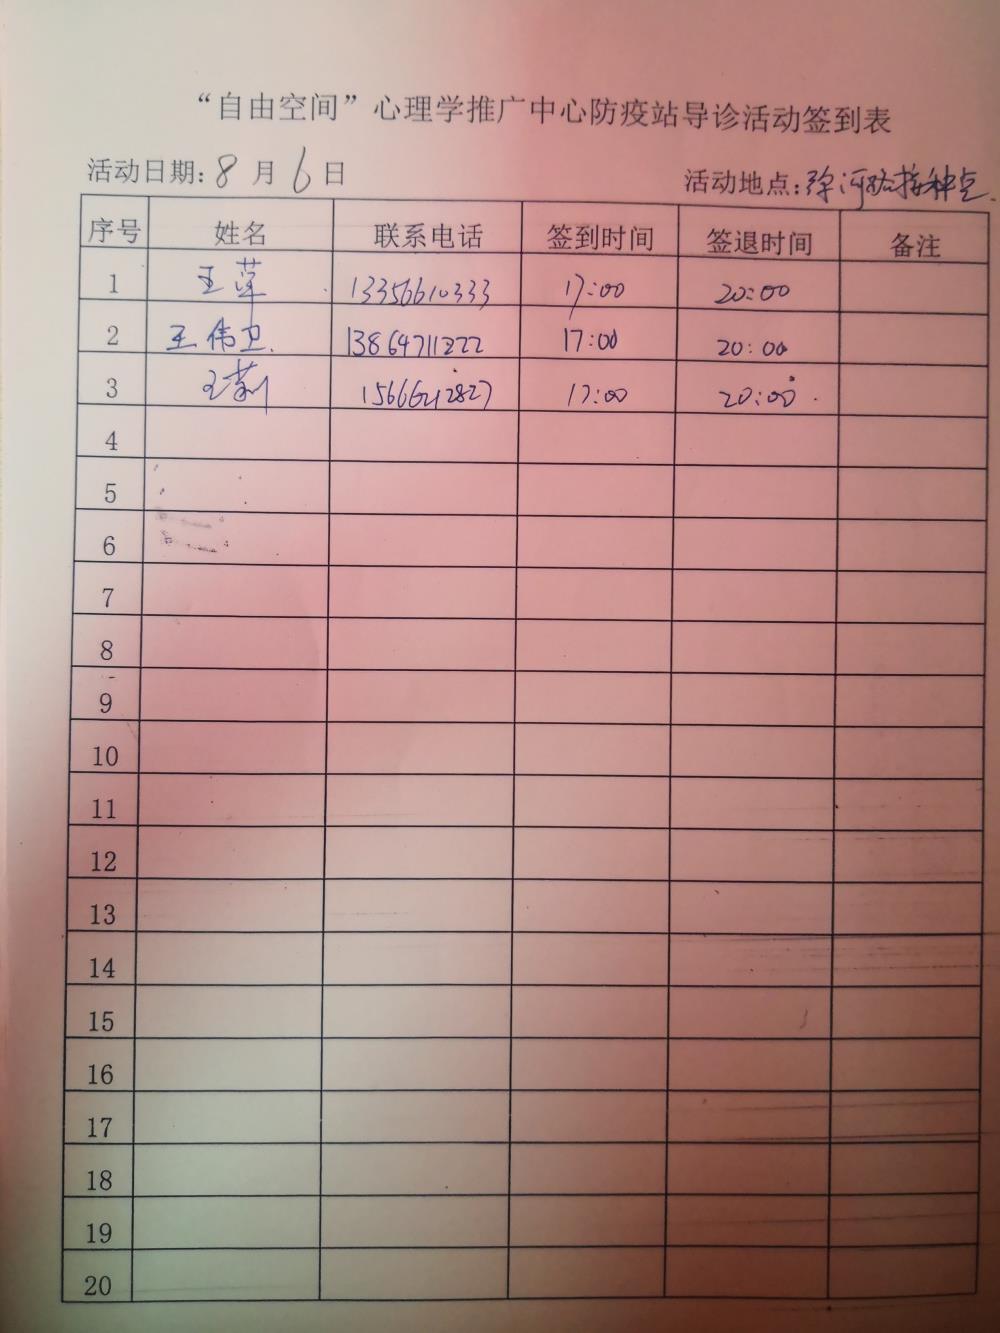 “自由空间”心理学推广中心防疫站导诊活动签到表
活动日期:8月6日 活动地点:河路接种点.
序号 姓名 联系电话 签到时间 签退时间 备注
1 王萍 13356610333 17:00 20:00
2 王伟卫. 13864711222 17:00 20:00
3 王莉 15666212827 17:00 20:00.
4
5
6
7
8
9
10
11
12
13
14
15
16
17
18
19
20